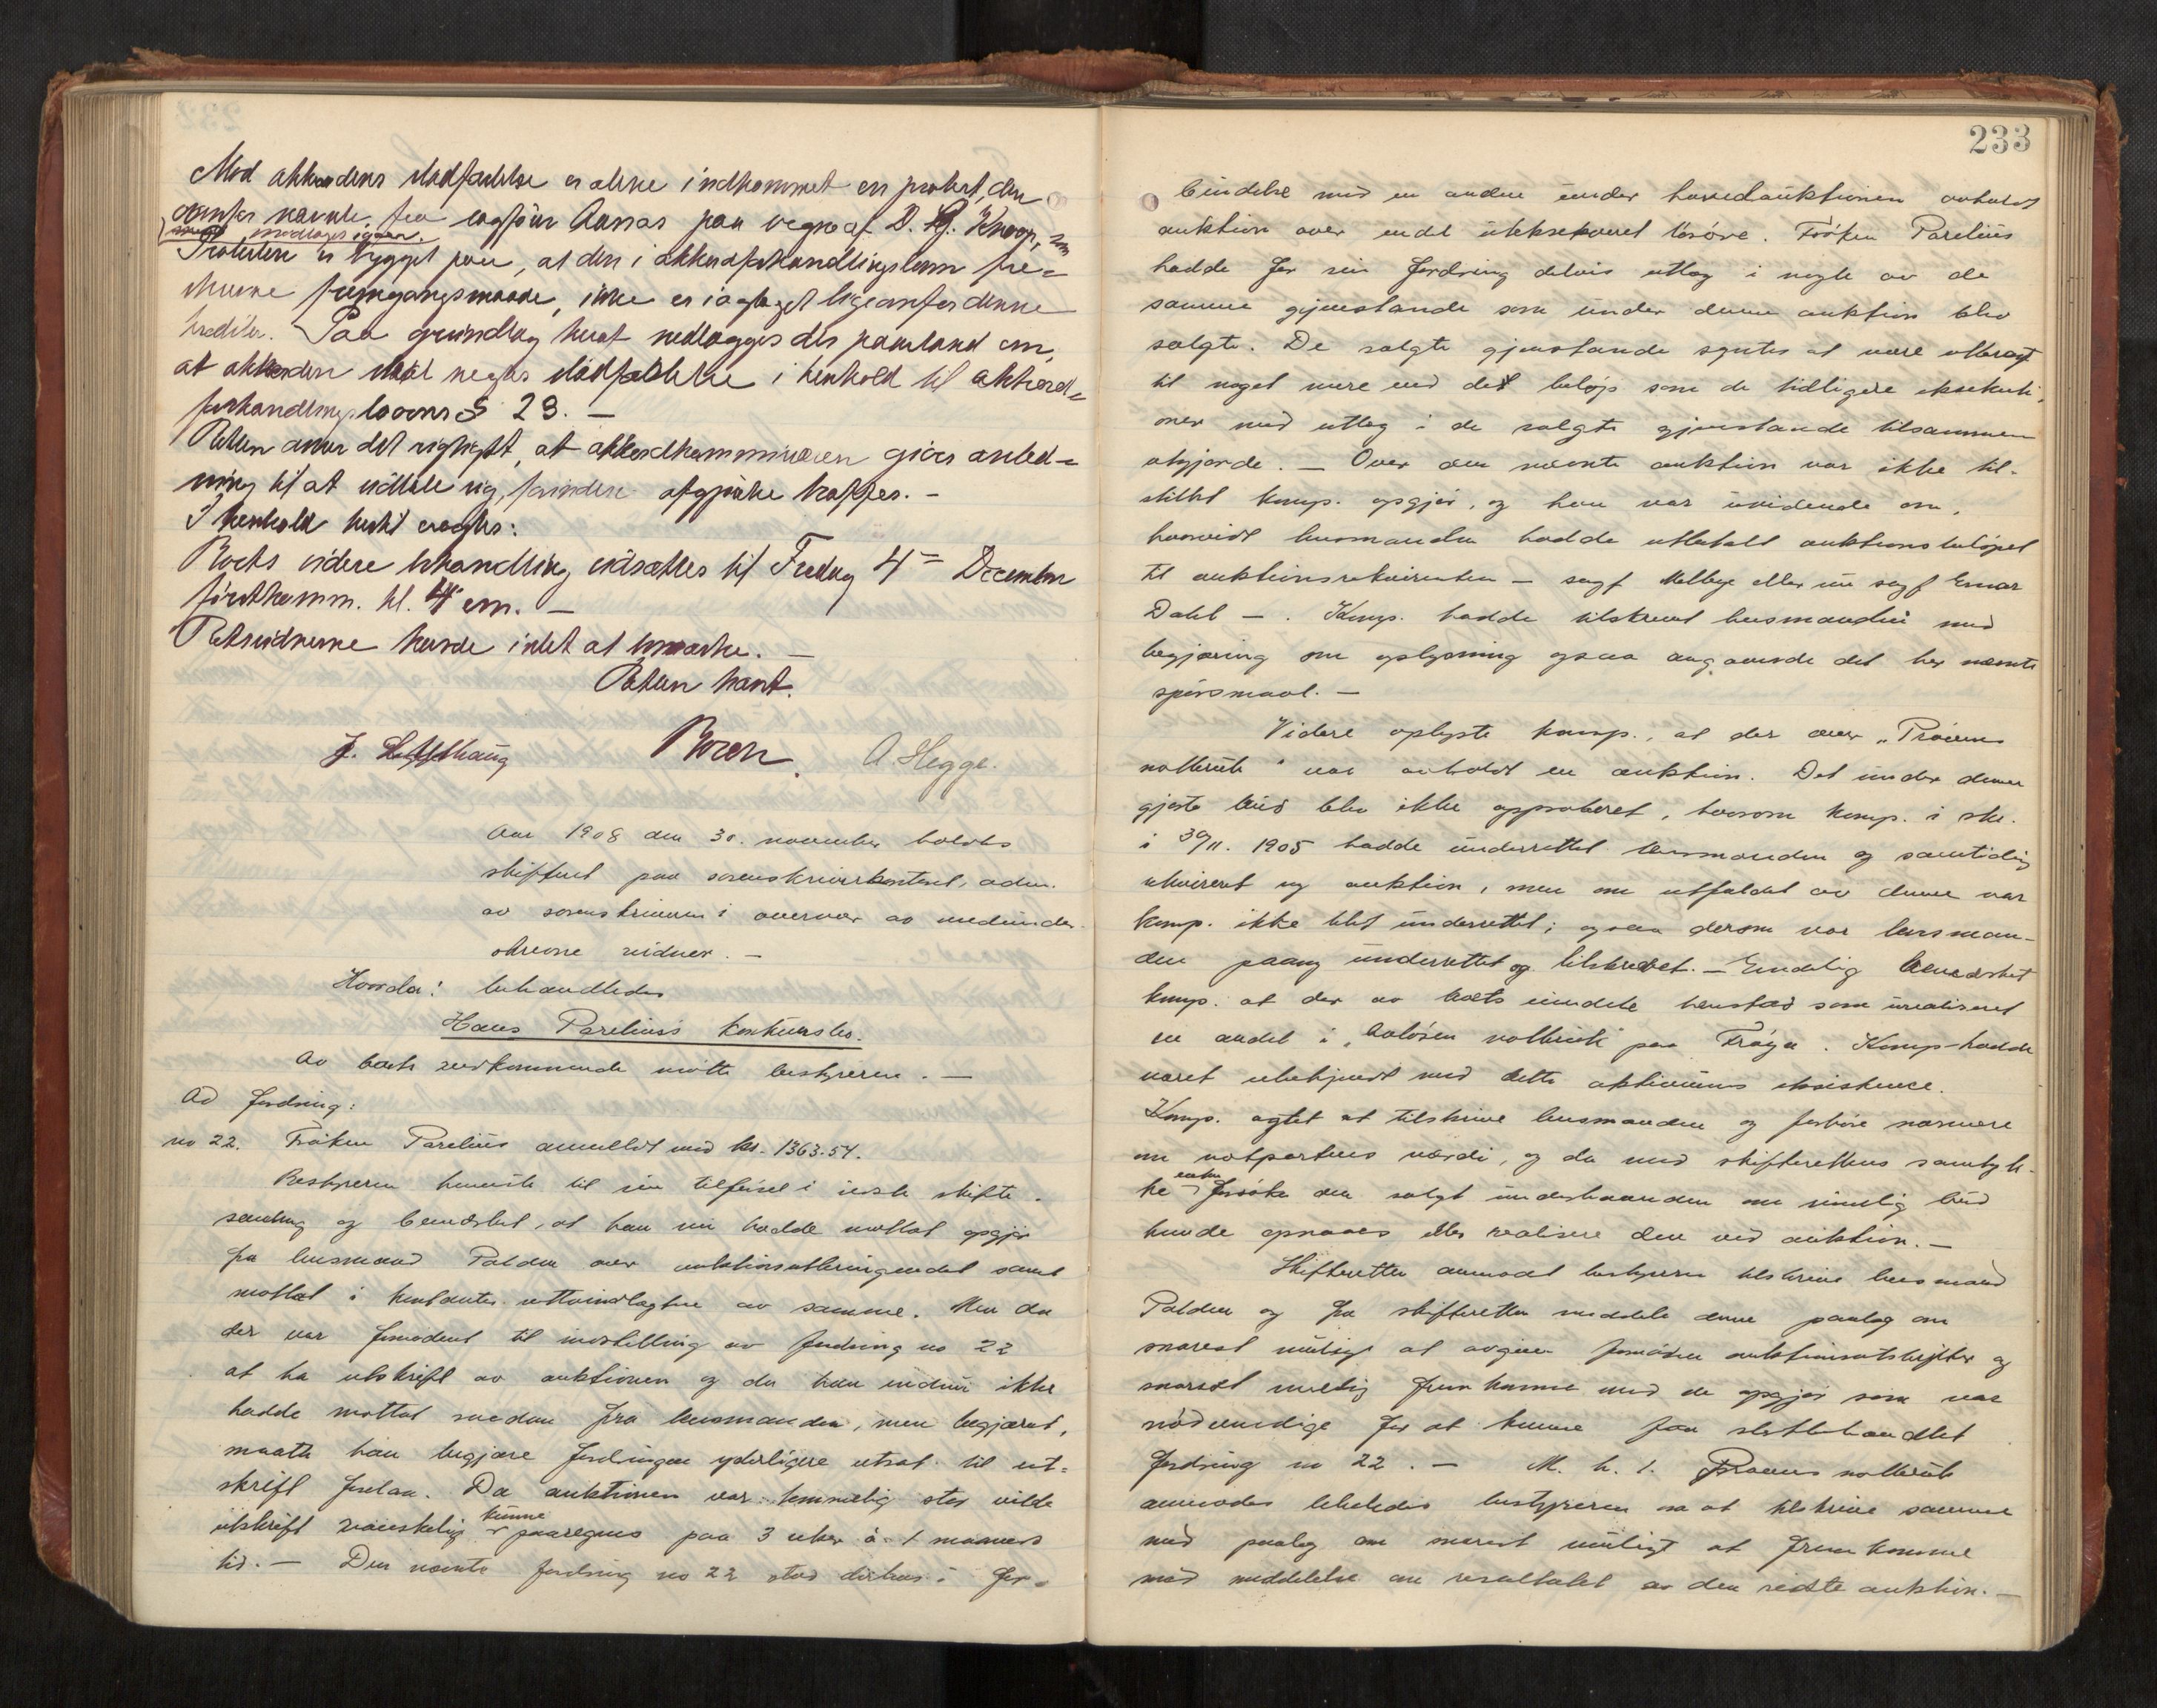 Mod akkordens stadfæstelse er alene indkommet en protest, den
nævnte fra sagfører Aarsæs paa vegne af D. G. Knoop, som
modtoges igaar.
Protesten er bygget paa, at den i akkordforhandlingsloven fore-
skrevne fremgangsmaade, ikke er iagttaget ligeoverfor denne
kreditor. Paa grundlag heraf nedlægges der paastand om,
at akkorden skal negtes stadfæstelse i henhold til akkord-
forhandlingslovens § 29. —
Retten anser det rigtigst, at akkordkommissæren gives anled-
ning til at udtale sig, forinden afgjørelse træffes. -
I henhold hertil eragtes:
Boets videre behandling udsættes til Fredag 4de December
førstkomm. kl. 4 em. —
Retsvidnerne havde intet at bemærke. —
Retten hævet.
Boren. A. Hegge.
Aar 1908 den 30. november holdtes
skifteret paa sorenskriverkontoret, adm.
av sorenskriveren i overvær av medunder-
skrevne vidner. —
Hvorda: behandledes
Hans Parelius's konkursbo.
Av boets vedkommende møtte bestyreren. —
Ad fordring:
no 22. Frøken Parelius anmeldt med kr. 1363.54.
Bestyreren henviste til sin tilførsel i sidste skifte-
samling og bemerket, at han nu hadde mottat opgjør
fra lensmand Palden over auktionsutbringendet samt
mottat i kontanter nettoindtægten av samme. Men da
der var fornødent til indstilling av fordring no 22
at ha utskrift av auktionen og da han endnu ikke
hadde mottat saadan fra lensmanden, men begjæret,
maatte han begjære fordringen yderligere utsat til ut-
skrift forelaa. Da auktionen var temmelig stor vilde
utskrift vanskelig kunne paaregnes paa 3 uker à 1 maaneds
tid. — Den nævnte fordring no 22 stod dessuten i for-
233
bindelse med en anden under hovedauktionen avholdt
auktion over endel utekseqveret løsøre. Frøken Parelius
hadde for sin fordring delvis utlæg i nogle av de
samme gjenstande som under denne auktion blev
solgte. De solgte gjenstande syntes at være utbragt
til noget mere end det beløp som de tidligere eksekuti-
oner med utlæg i de solgte gjenstande tilsammen
utgjorde. — Over den nævnte auktion var ikke til-
stillet komp. opgjør, og han var uvidende om,
hvorvidt lensmanden hadde utbetalt auktionsbeløpet
til auktionsrekvirenten — sagf. Melbye eller nu sagf Einar
Dahl —. Komp. hadde tilskrevet lensmanden med
begjæring om oplysning ogsaa angaaende det her nævnte
spørsmaal. —
Videre oplyste komp., at der over „Prøvens
notbruk" var avholdt en auktion. Det under denne
gjorte bud blev ikke approberet, hvorom komp. i skr.
i 30/11. 1905 hadde underrettet lensmanden og samtidig
rekvireret ny auktion, men om utfaldet av denne var
komp. ikke blit underrettet; ogsaa derom var lensman-
den paany underrettet og tilskrevet. — Endelig bemerket
komp. at der av boets midler henstod som urealiseret
en andel i „ notbruk" paa Frøya. Komp. hadde
været ubekjendt med dette aktivums eksistence.
Komp. agtet at tilskrive lensmanden og forhøre nærmere
om notpartens værdi, og da med skifterettens samtyk-
ke enten forsøke den solgt underhaanden om rimelig bud
kunde opnaaes eller realisere den ved auktion. —
Skifteretten anmodet bestyreren tilskrive lensmand
Palden og fra skifteretten meddele denne paalæg om
snarest muligt at avgive fornøden auktionsutskrifter og
snarest mulig fremkomme med de opgjør som var
nødvendige for at kunne faa sluttbehandlet
fordring no 22. — M. h. t. Prøvens notbruk
anmodes likeledes bestyreren om at tilskrive samme
med paalæg om snarest muligt at fremkomme
med meddelelse om resultatet av den sidste auktion. —